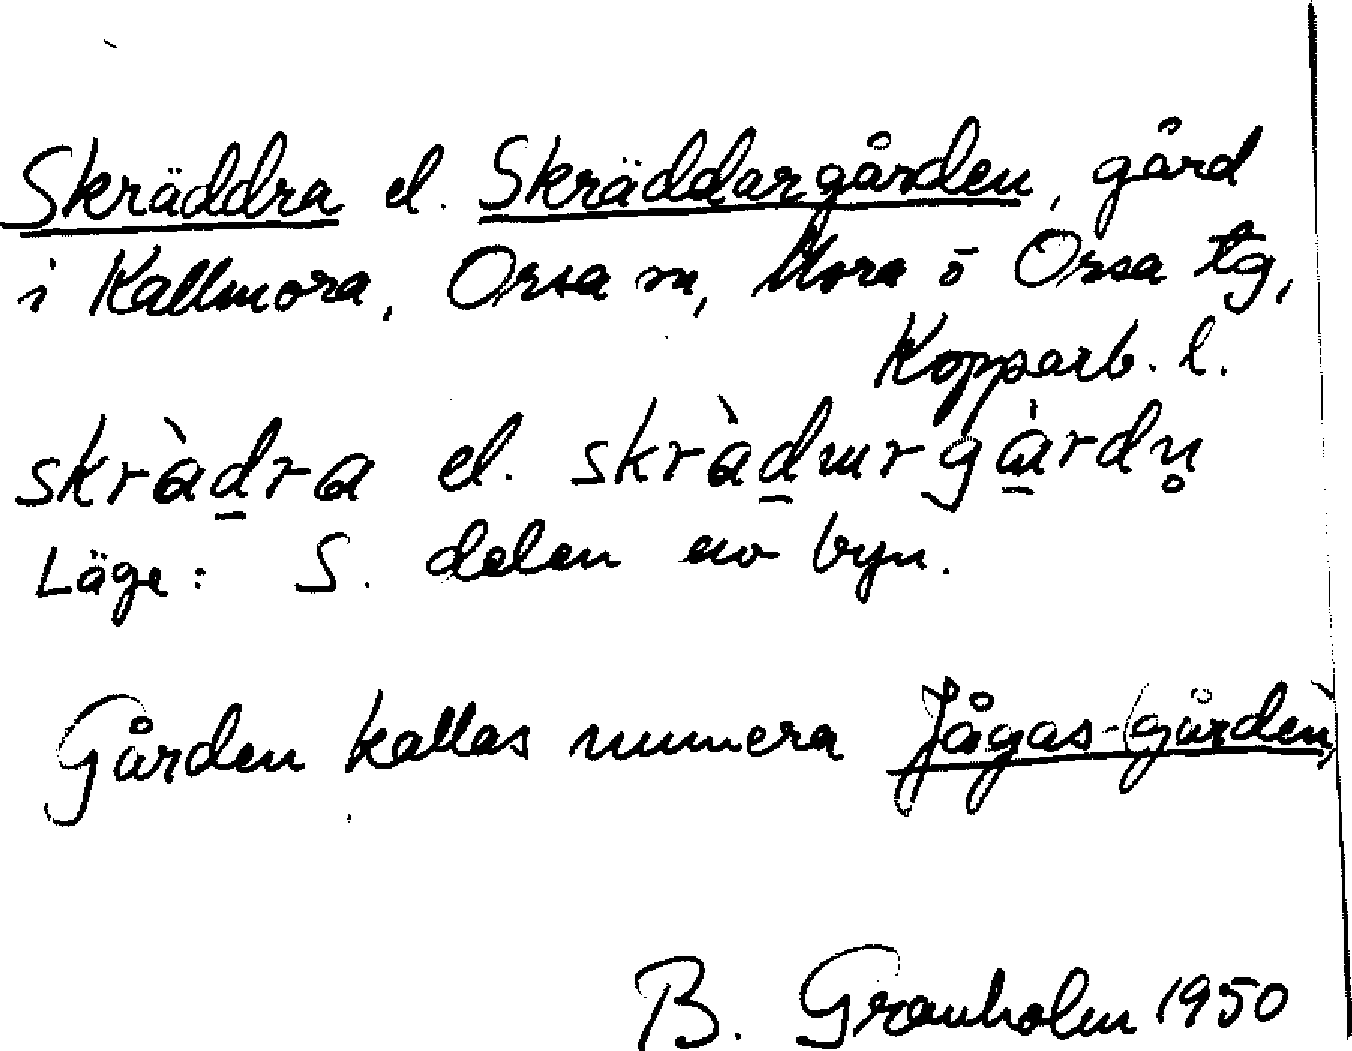 Skräddra el. Skräddargården, gård
i Kallmora, Orsa sn, Mora o Orsa tg,
Kopparb. l.
skràd̲ra el. skràd̲ɯrgà̲rdn̥
Läge: S. delen av byn.
Gården kallas numera Jågas-(gården)
B. Granholm 1950